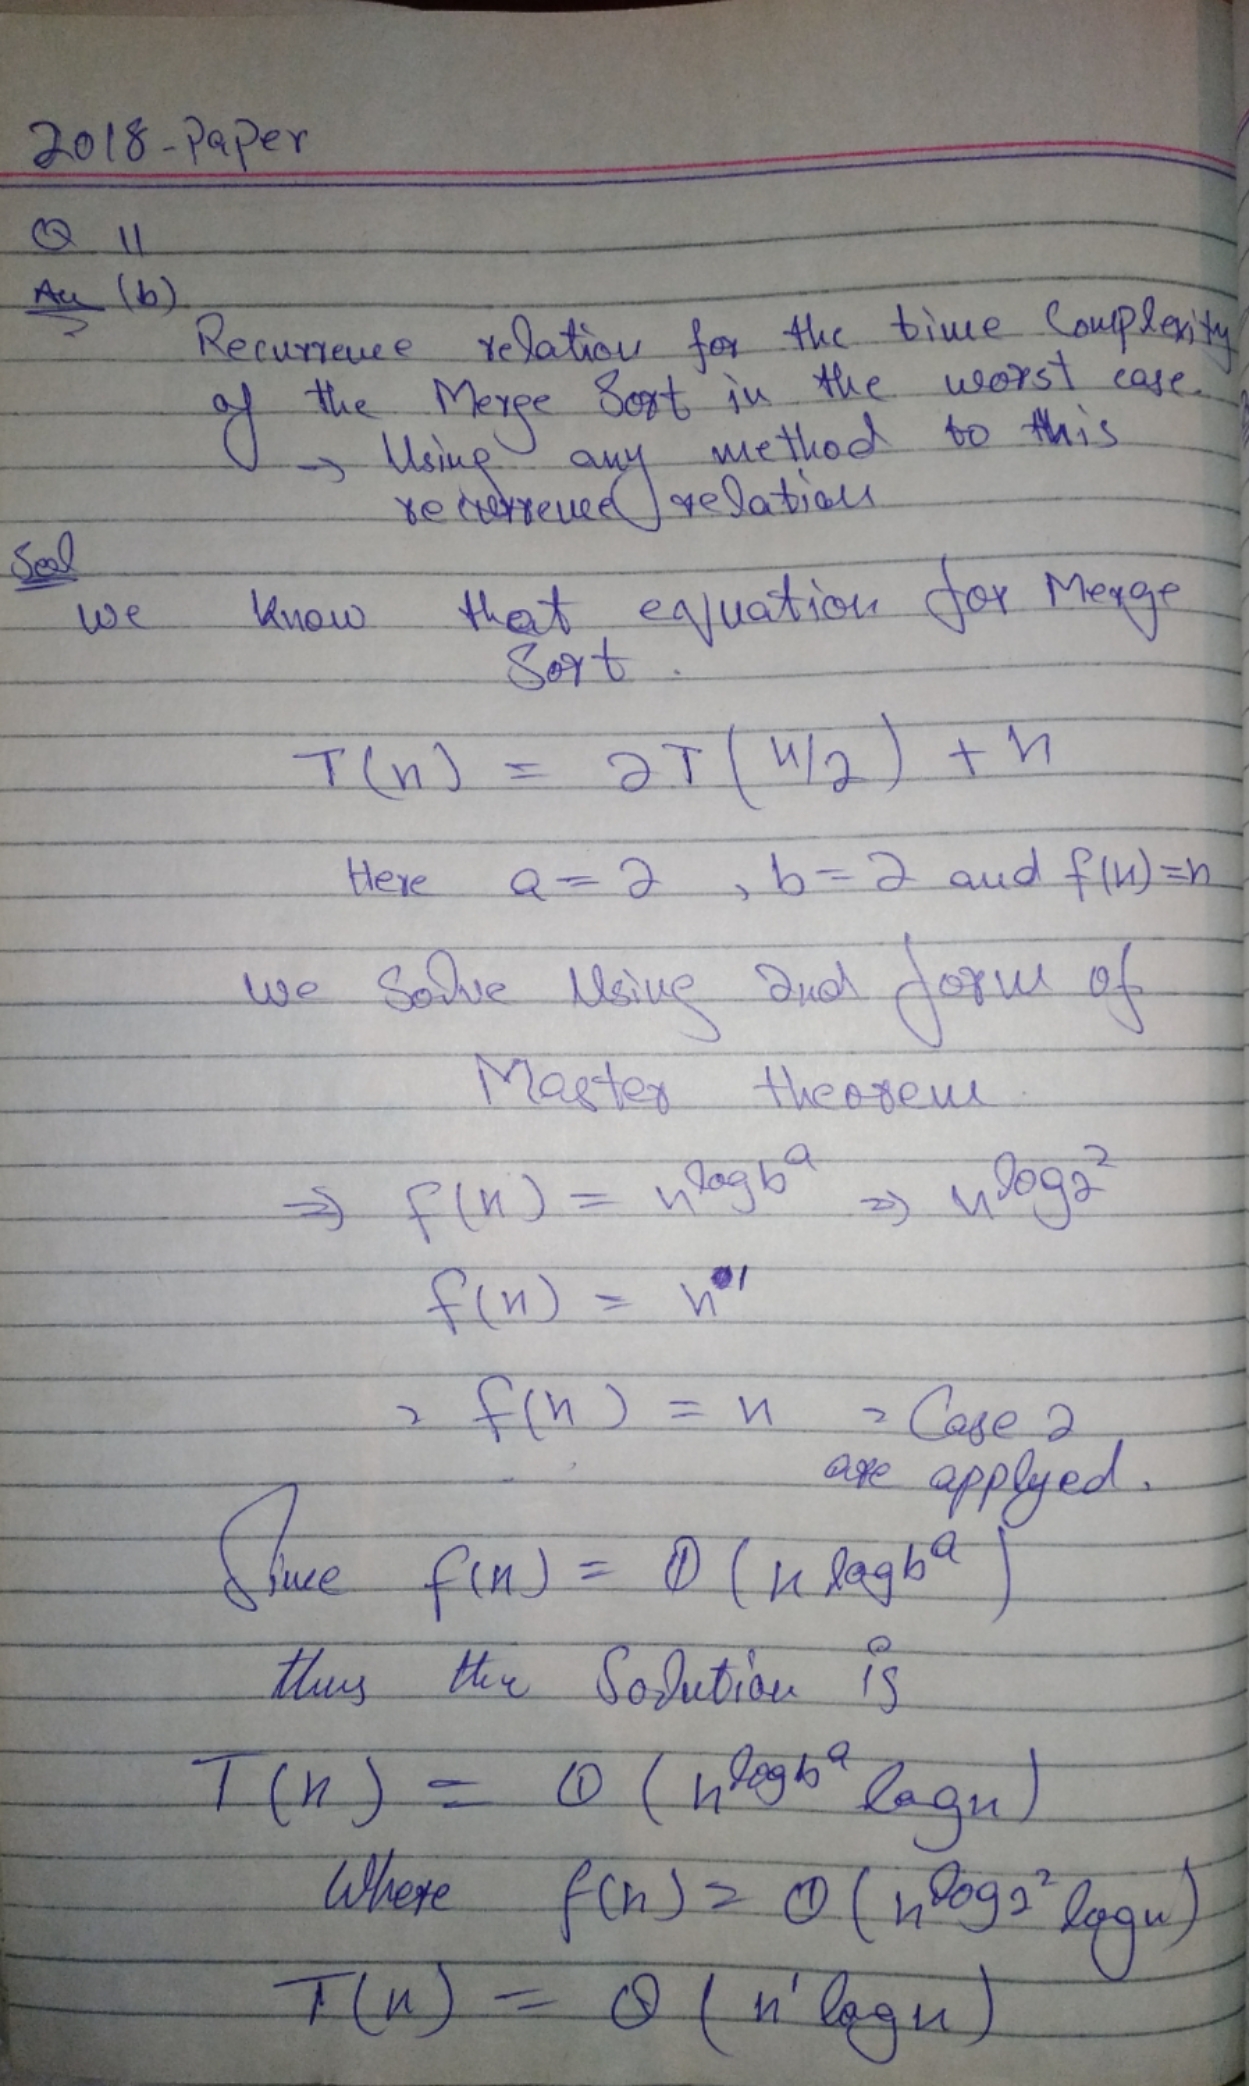 2018-Paper
Q 11
(b)
Recurrence relation for the time Complexity
of the Merge Sort in the worst case.
→ Using any method to this
recurrence relation
Sol
we know that equation for Merge
Sort.
T(n) = 2T(n/2) + n
Here a=2 , b=2 and f(n)=n
we Solve Using 2nd form of
Master theorem.
⇒ f(n) = n^{log_b a} ⇒ n^{log_2 2}
f(n) = n^1
f(n) = n = Case 2
are applyed.
Since f(n) = Θ(n^{log_b a})
thus the Solution is
T(n) = Θ(n^{log_b a} logn)
Where f(n) = Θ(n^{log_2 2} logn)
T(n) = Θ(n^1 logn)